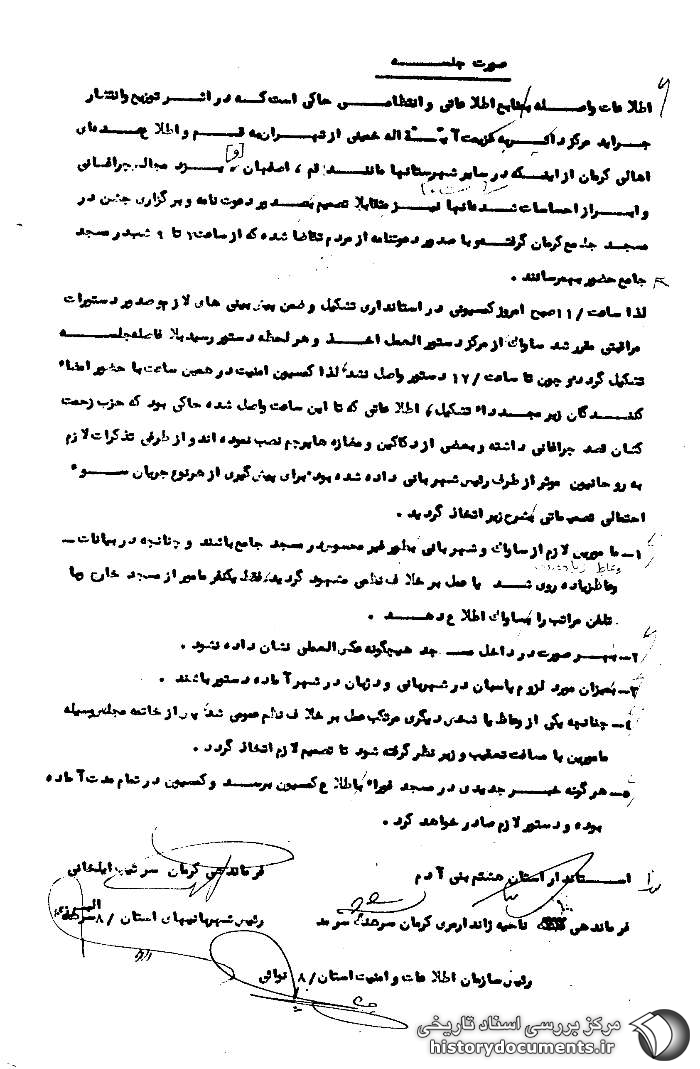 صورت جلســــــه
اطلاعات واصله بمنابع اطلاعاتی و انتظامی حاکی است که در اثر توزیع و انتشار
جراید مرکز دائر به عزیمت آیت اله خمینی از تهران به قم و اطلاع عده‌ای
اهالی کرمان از اینکه در سایر شهرستانها مانند قم ، اصفهان [و] یزد مجالس چراغانی
و ابراز احساسات شده آنها نیز متقابلا تصمیم بصدور دعوت نامه و برگزاری جشن در
مسجد جامع کرمان گرفته و با صدور دعوتنامه از مردم تقاضا شده که از ساعت ۷ تا ۹ شب در مسجد
جامع حضور بهمرسانند .
لذا ساعت /۱۱ صبح امروز کمسیونی در استانداری تشکیل و ضمن پیش بینی های لازم و صدور دستورات
مراقبتی مقرر شد ساواک از مرکز دستور العمل اخذ و هر لحظه دستور رسید بلا فاصله جلسه
تشکیل گردد و چون تا ساعت /۱۷ دستور واصل نشد لذا کمسیون امنیت در همین ساعت با حضور امضاء
کنندگان زیر مجددا تشکیل ، اطلاعاتی که تا این ساعت واصل شده حاکی بود که حزب زحمت
کشان قصد چراغانی داشته و بعضی از دکاکین و مغازه ها پرچم نصب نموده اند و از طرفی تذکرات لازم
به روحانیون موثر از طرف رئیس شهربانی داده شده بود برای پیش گیری از هر نوع جریان سوء
احتمالی تصمیماتی بشرح زیر اتخاذ گردید .
۱ـ مامورین لازم از ساواک و شهربانی بطور غیر محسوس در مسجد جامع باشند و چنانچه در بیانات ـ
وعاظ زیاده روی شد یا عمل بر خلاف نظمی مشهود گردید فقط یکنفر مامور از مسجد خارج و با
تلفن مراتب را بساواک اطلاع دهد .
۲ـ بهر صورت در داخل مسجد هیچگونه عکس العملی نشان داده نشود .
۳ـ بمیزان مورد لزوم پاسبان در شهربانی و دژبان در شهر آماده دستور باشند .
۴ـ چنانچه یکی از وعاظ یا شخص دیگری مرتکب عمل بر خلاف نظم عمومی شد پس از خاتمه مجلس بوسیله
مامورین با مسافت تعقیب و زیر نظر گرفته شود تا تصمیم لازم اتخاذ گردد .
۵ـ هر گونه خبر جدیدی در مسجد فوراً باطلاع کمسیون برسد و کمسیون در تمام مدت آماده
بوده و دستور لازم صادر خواهد کرد .
استاندار استان هشتم بنی آدم
فرماندهی کرمان سرتیپ ایلخانی
فرماندهی ناحیه ژاندارمری کرمان سرهنگ سرمد
رئیس شهربانیهای استان /۸ سرهنگ
رئیس سازمان اطلاعات و امنیت استان /۸ نوائی
مرکز بررسی اسناد تاریخی
historydocuments.ir